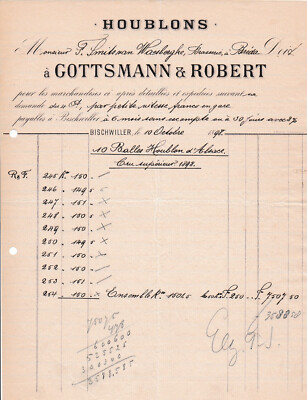 HOUBLONS
Monsieur P. Smits van Waesberghe, Brasseur, à Breda Doit
à GOTTSMANN & ROBERT
pour les marchandises ci après détaillées et expédiées suivant sa
demande du 4 ct, par petite vitesse franco en gare
payables à Bischwiller, à 6 mois sans escompte ou à 30 jours avec 3%
BISCHWILLER, le 10 Octobre 1898.
10 Balles Houblon d'Alsace
Cru supérieur 1898.
R&F. 245 Ko 150 "
246 " 149 5
247 " 151 "
248 " 150 "
249 " 150 "
250 " 149 5
251 " 150 "
252 " 151 "
253 " 150 "
254 " 150 " Ensemble Ko 1501 5 brut F. 250 F. 7507 50
75075
478
600600
525525
300300
3588585
3588 50